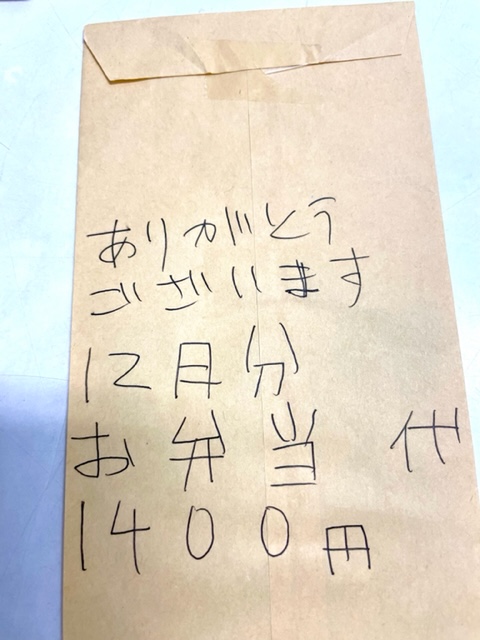 ありがとう
ございます
12日分
お弁当 代
1400円